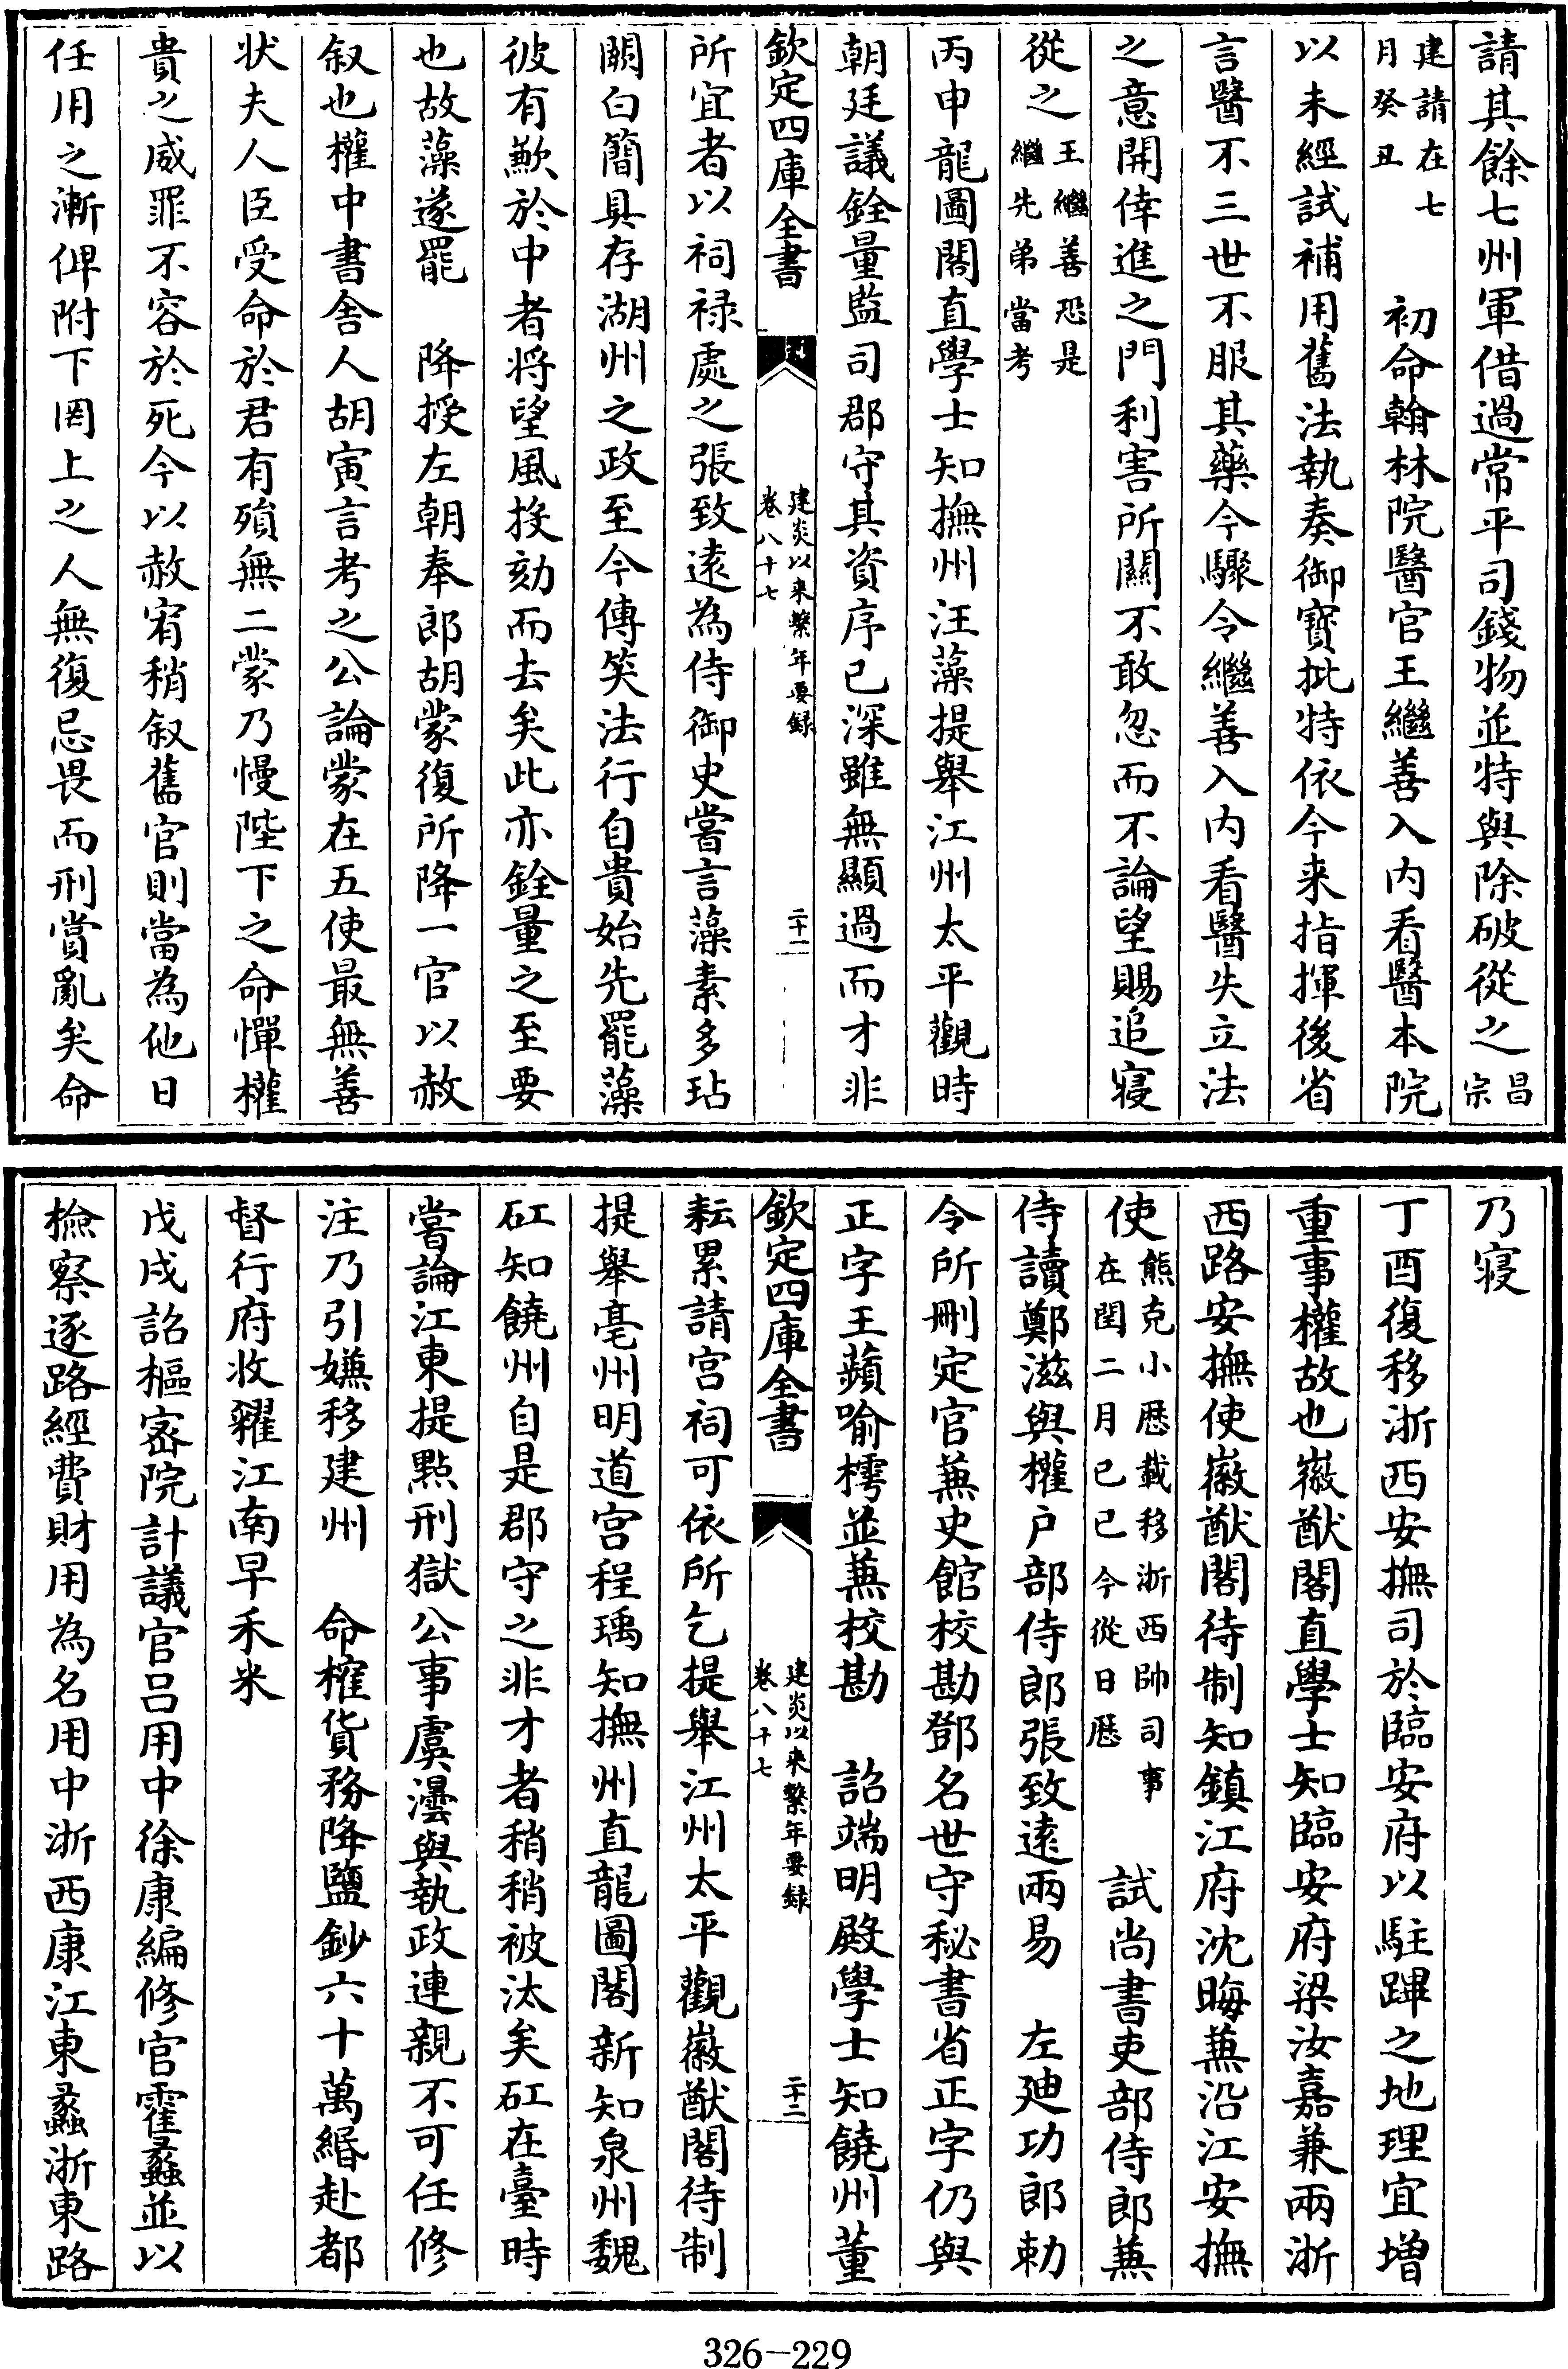 請其餘七州軍借過常平司錢物並特與除破從之昌宗
建請在七月癸丑　初命翰林院醫官王繼善入内看醫本院
以未經試補用舊法執奏御寳批特依今来指揮後省
言醫不三世不服其藥今驟令繼善入内看醫失立法
之意開倖進之門利害所關不敢忽而不論望賜追寝
從之王繼善恐是繼先弟當考
丙申龍圖閣直學士知撫州汪藻提舉江州太平觀時
朝廷議銓量監司郡守其資序已深雖無顯過而才非
欽定四庫全書　建炎以来繫年要録卷八十七　二十一
所宜者以祠禄處之張致逺為侍御史嘗言藻素多玷
闕白簡具存湖州之政至今傳笑法行自貴始先罷藻
彼有歉於中者將望風投劾而去矣此亦銓量之至要
也故藻遂罷　降授左朝奉郎胡蒙復所降一官以赦
叙也權中書舍人胡寅言考之公論蒙在五使最無善
状夫人臣受命於君有殞無二蒙乃慢陛下之命憚權
貴之威罪不容於死今以赦宥稍叙舊官則當為他日
任用之漸俾附下罔上之人無復忌畏而刑賞亂矣命
乃寝
丁酉復移浙西安撫司於臨安府以駐蹕之地理宜增
重事權故也徽猷閣直學士知臨安府梁汝嘉兼兩浙
西路安撫使徽猷閣待制知鎮江府沈晦兼沿江安撫
使熊克小厯載移浙西帥司事在閏二月已已今從日厯　試尚書吏部侍郎兼
侍讀鄭滋與權户部侍郎張致逺兩易　左廸功郎勅
令所刪定官兼史館校勘鄧名世守秘書省正字仍與
正字王蘋喻樗並兼校勘　詔端明殿學士知饒州董
欽定四庫全書　建炎以来繫年要録卷八十七　二十二
耘累請宫祠可依所乞提舉江州太平觀徽猷閣待制
提舉亳州明道宫程瑀知撫州直龍圖閣新知泉州魏
矼知饒州自是郡守之非才者稍稍被汰矣矼在臺時
嘗論江東提點刑獄公事虞澐與執政連親不可任修
注乃引嫌移建州　命榷貨務降鹽鈔六十萬緡赴都
督行府收糴江南早禾米
戊戌詔樞宻院計議官吕用中徐康編修官霍蠡並以
撿察逐路經費財用為名用中浙西康江東蠡浙東路
326－229